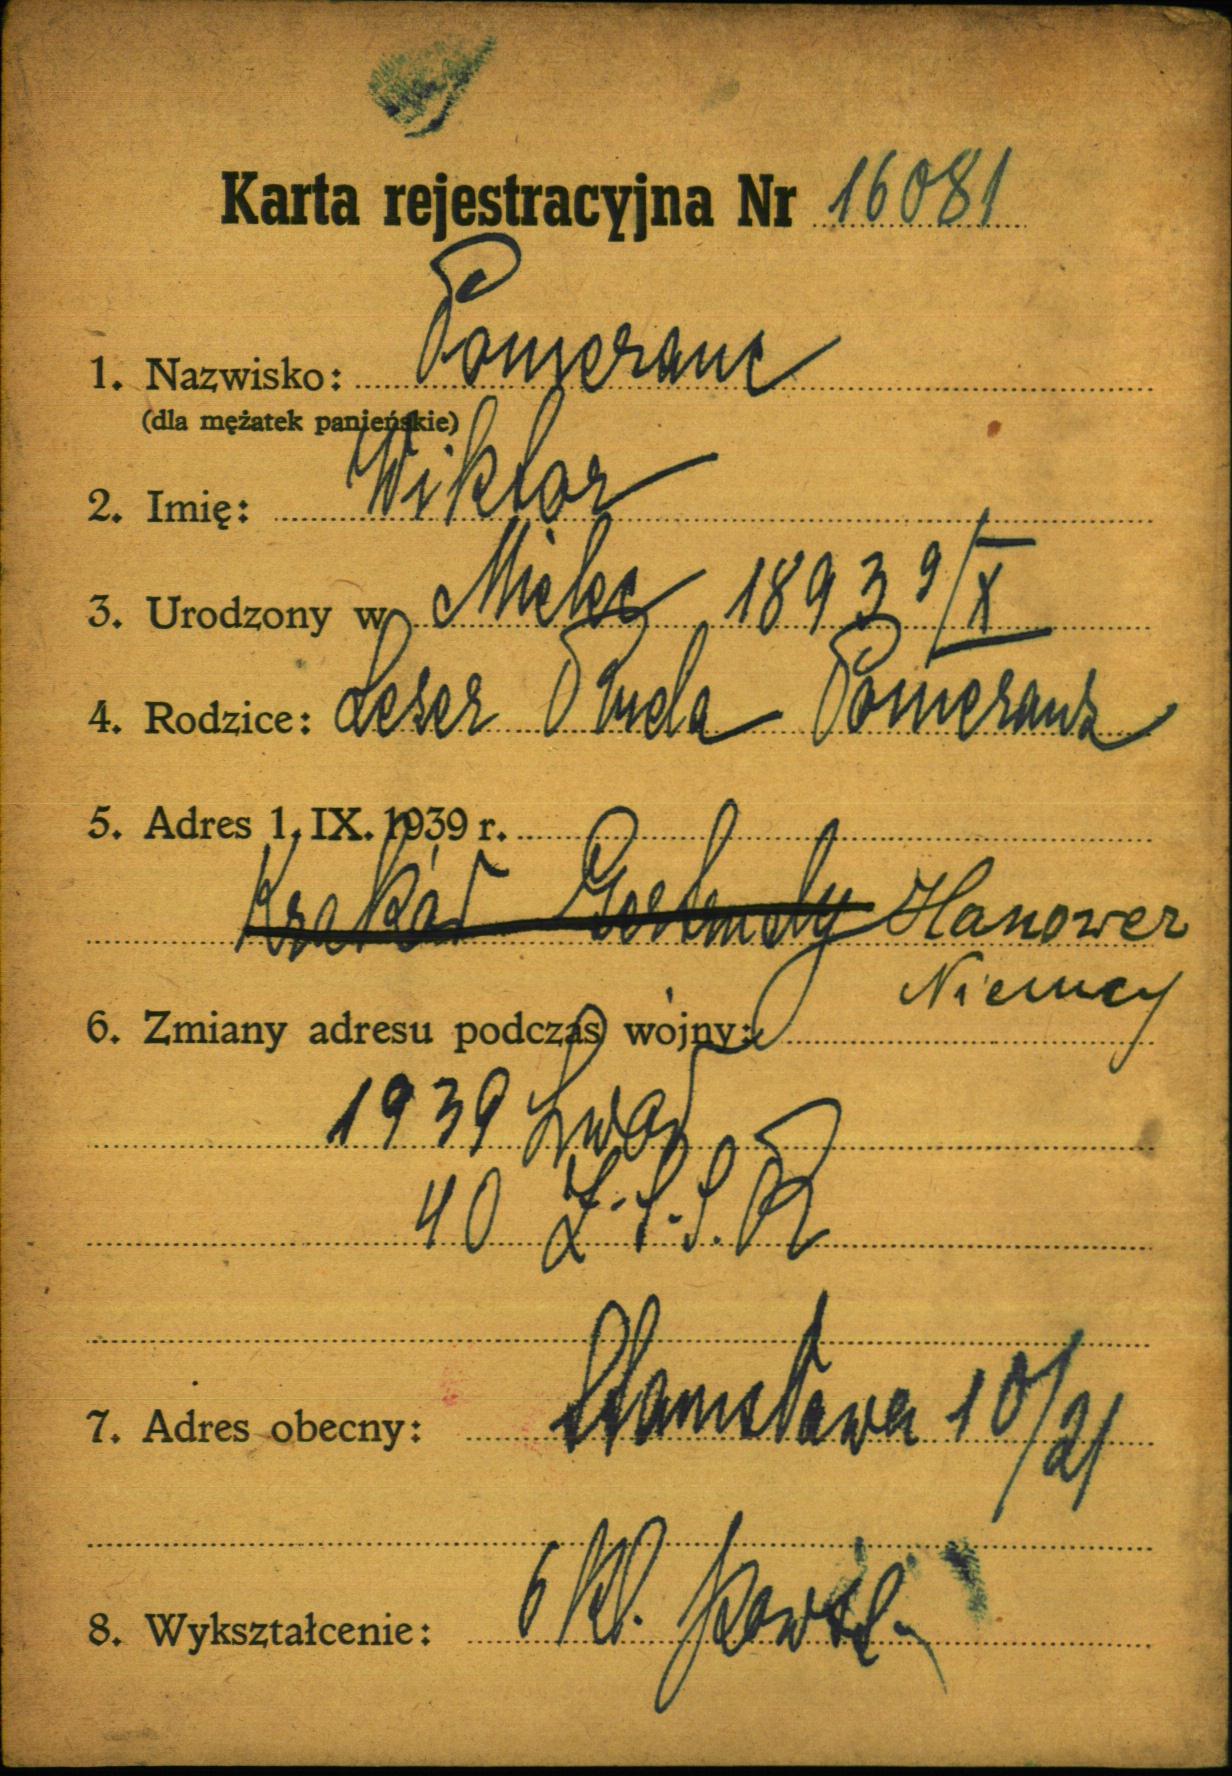 Karta rejestracyjna Nr 16081
1. Nazwisko: Pomeranc
(dla mężatek panieńskie)
2. Imię: Wiktor
3. Urodzony w Mielec 1893 9/X
4. Rodzice: Leser Pomeranz
5. Adres 1. IX. 1939 r.
Kraków Hanower
Niemcy
6. Zmiany adresu podczas wojny:
1939 Lwów
40 Z.S.S.R
7. Adres obecny: 10/21
8. Wykształcenie: 6 kl. powsz.